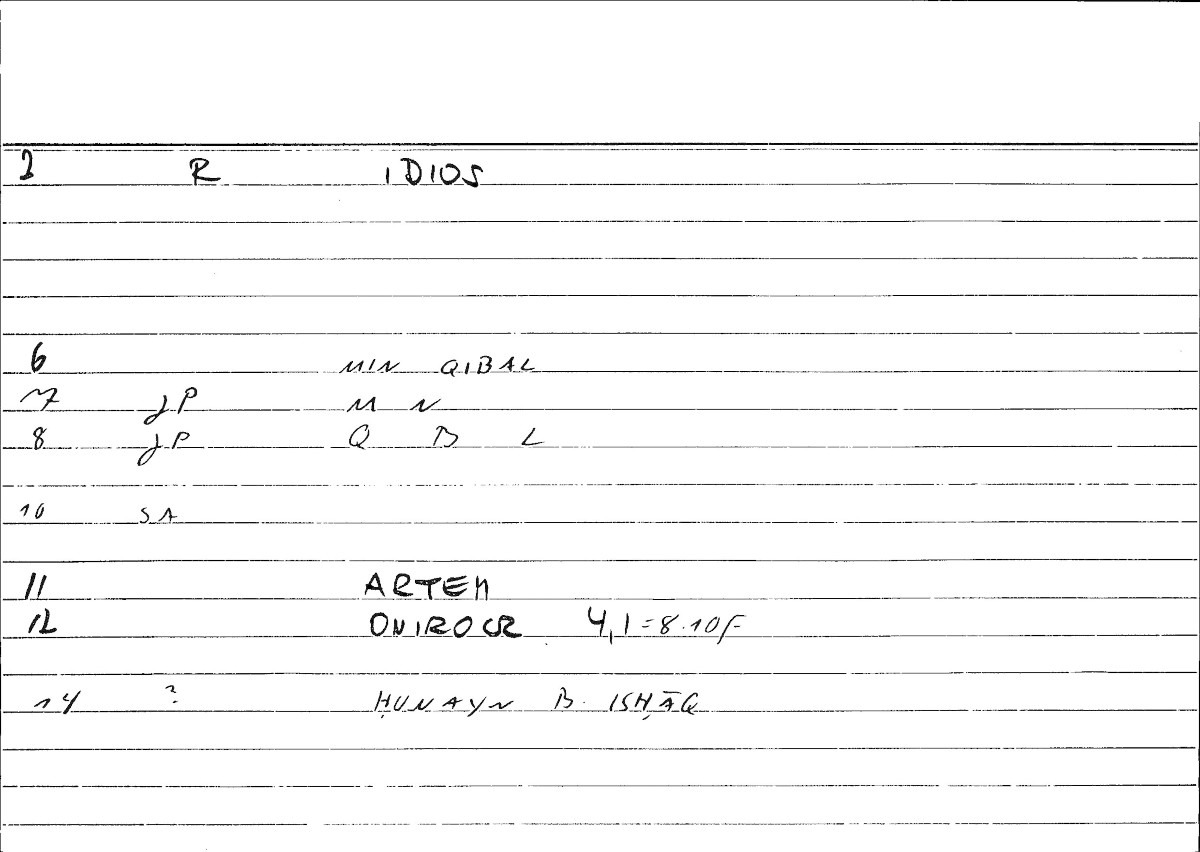 2 R IDIOS
6 MIN QIBAL
7 JP M N
8 JP Q B L
10 SA
11 ARTEM
12 ONIROCR 4,1=8.10F
14 ? ḤUNAYN B. ISḤĀQ